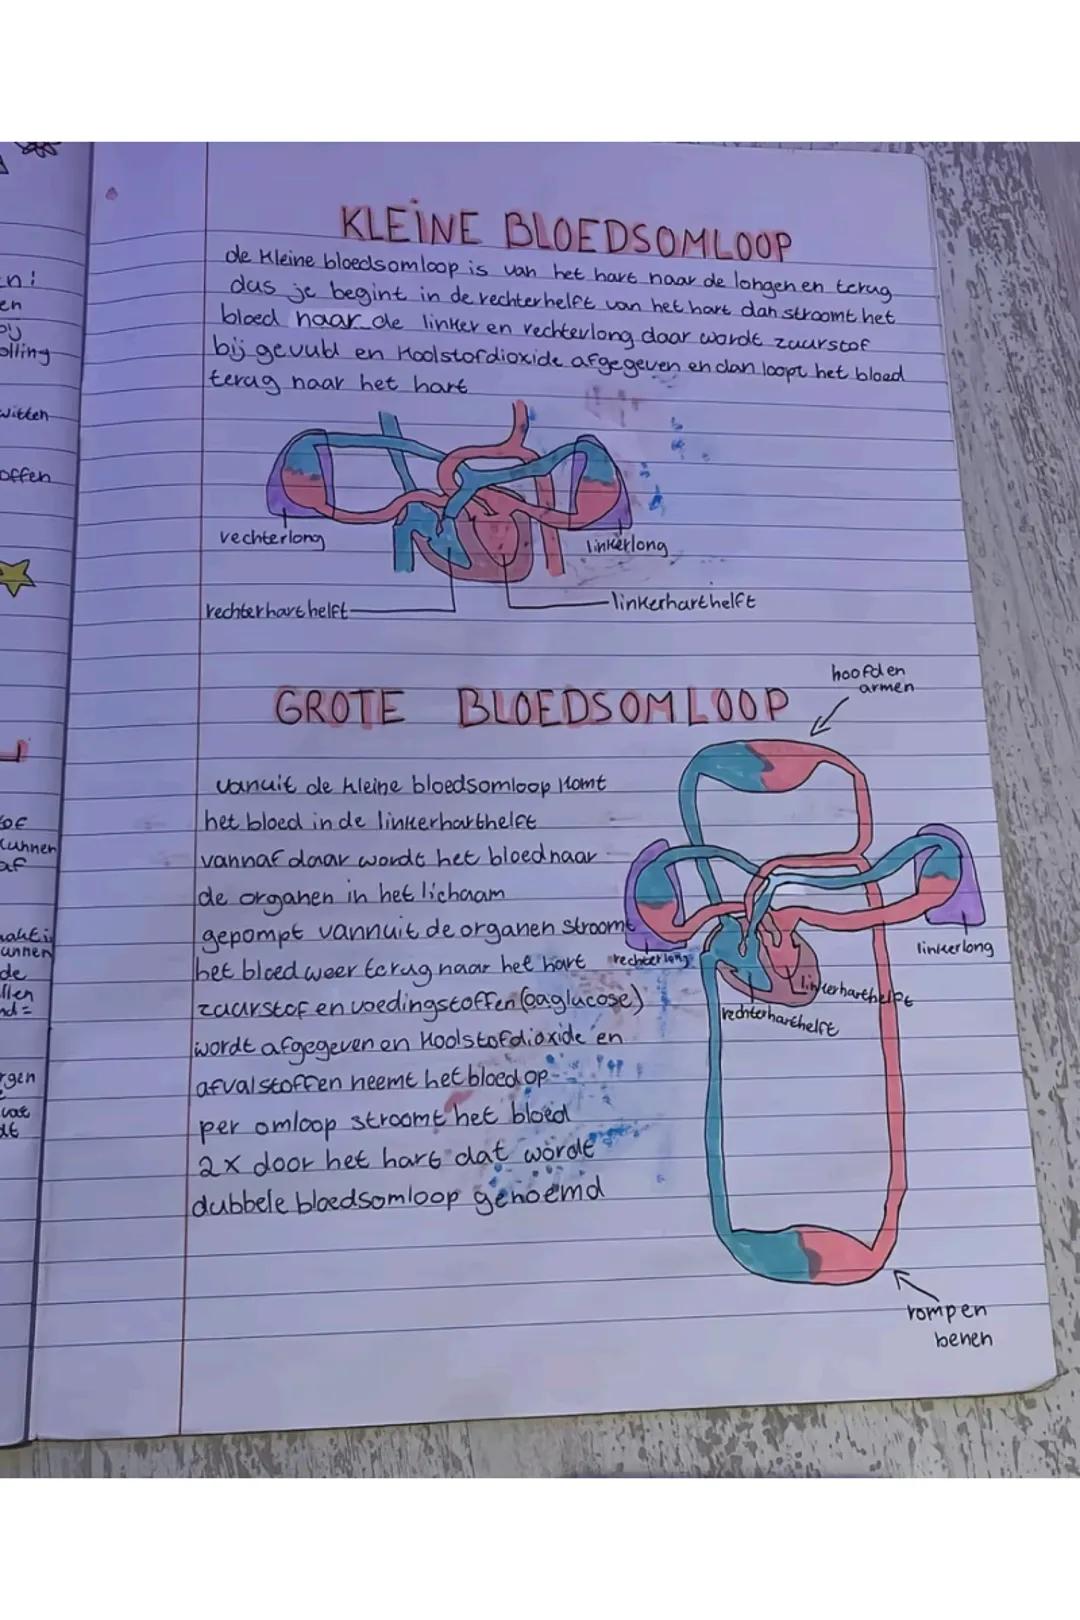 KLEINE BLOEDSOMLOOP
de kleine bloedsomloop is van het hart naar de longen en terug
dus je begint in de rechterhelft van het hart dan stroomt het
bloed naar de linker en rechterlong daar wordt zuurstof
bij gevuld en koolstofdioxide afgegeven en dan loopt het bloed
terug naar het hart
rechterlong
linkerlong
rechterharthelft
linkerharthelft
GROTE BLOEDSOMLOOP
hoofd en
armen
vanuit de kleine bloedsomloop komt
het bloed in de linkerharthelft
vannaf daar wordt het bloed naar
de organen in het lichaam
gepompt vannuit de organen stroomt
het bloed weer terug naar het hart
zuurstof en voedingstoffen (oa glucose)
wordt afgegeven en koolstofdioxide en
afvalstoffen neemt het bloed op
per omloop stroomt het bloed
2x door het hart dat wordt
dubbele bloedsomloop genoemd
rechterlong
linkerlong
linkerharthelft
rechterharthelft
romp en
benen
en
olling
witten
offen
kunnen
af
kunnen
de
llen
rgen